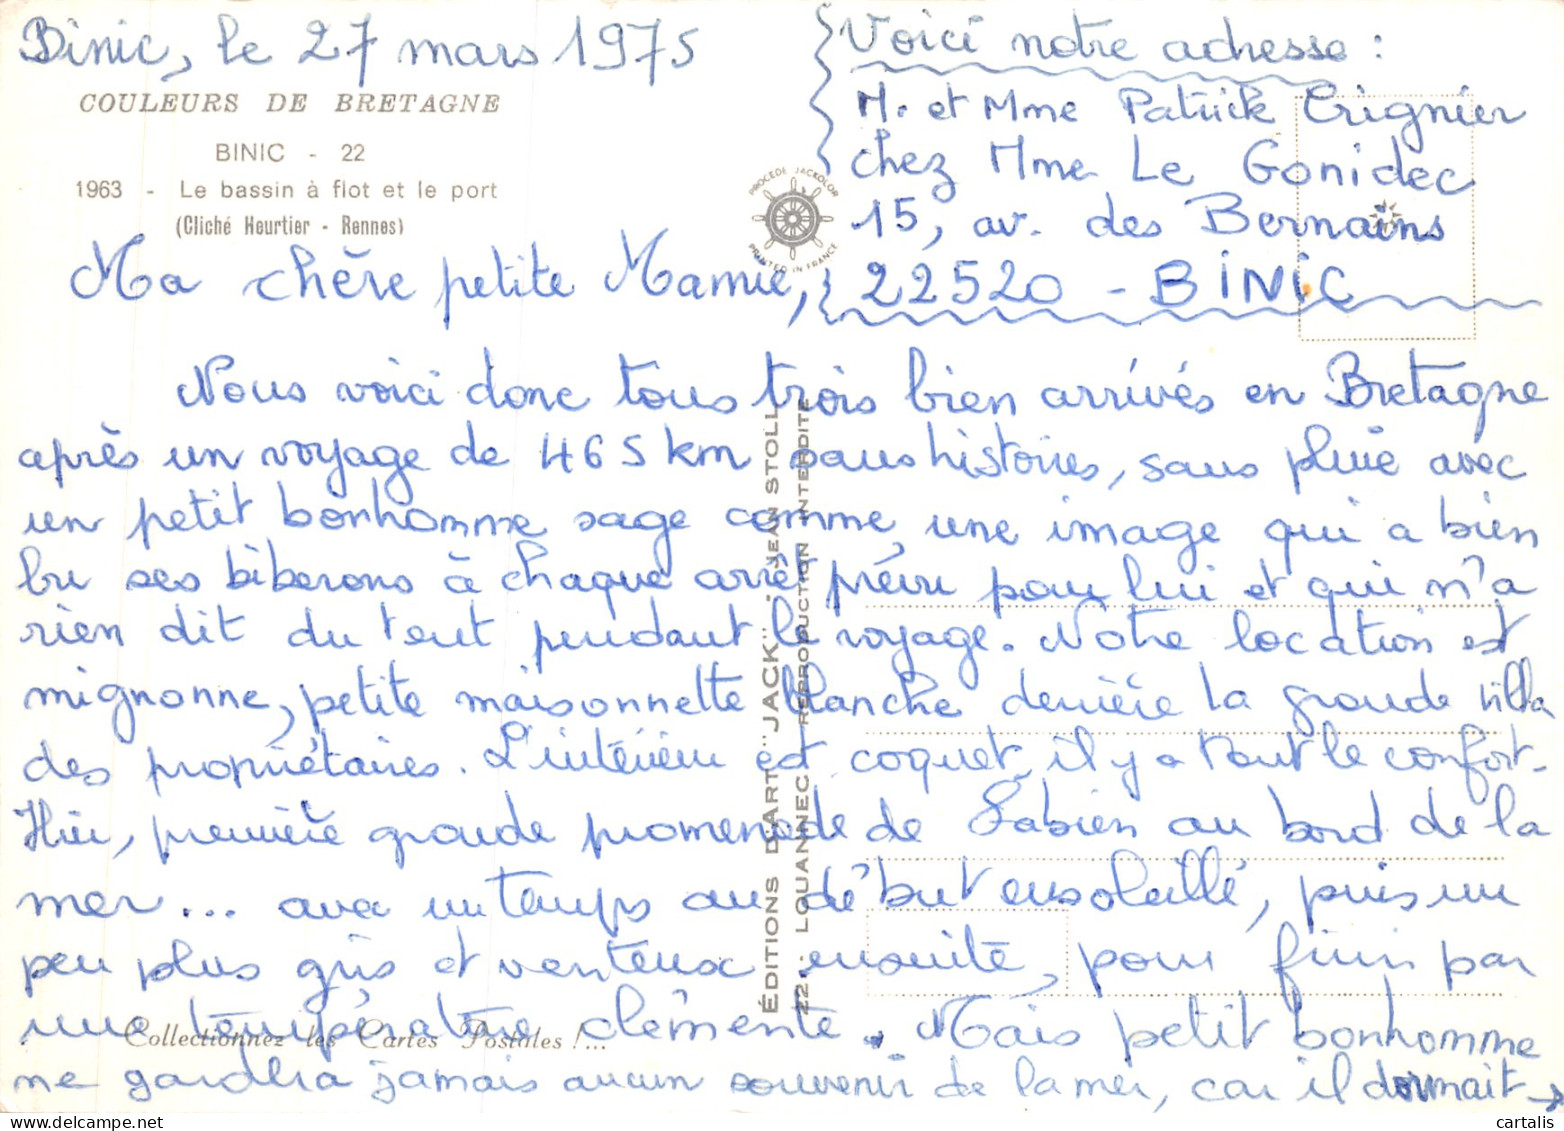 Binic, le 27 mars 1975
COULEURS DE BRETAGNE
BINIC - 22
1963 - Le bassin à flot et le port
(Cliché Heurtier - Rennes)
PROCÉDÉ JACKOLOR
PRINTED IN FRANCE
Voici notre adresse :
M. et Mme Patrick Crignier
chez Mme Le Gonidec
15, av. des Bernains
22520 - BINIC
Ma chère petite Mamie,
Nous voici donc tous trois bien arrivés en Bretagne
après un voyage de 465 km sans histoires, sans pluie avec
un petit bonhomme sage comme une image qui a bien
bu ses biberons à chaque arrêt prévu pour lui et qui n'a
rien dit du tout pendant le voyage. Notre location est
mignonne, petite maisonnette blanche derrière la grande villa
des propriétaires. L'intérieur est coquet, il y a tout le confort.
Hier, première grande promenade de Fabien au bord de la
mer... avec un temps au début ensoleillé, puis un
peu plus gris et venteux ensuite, pour finir par
une température clémente. Mais petit bonhomme
ne gardera jamais aucun souvenir de la mer, car il dormait →
ÉDITIONS D'ART "JACK" - JEAN STOLL
22 - LOUANNEC - REPRODUCTION INTERDITE
Collectionnez les Cartes Postales !...
cartalis